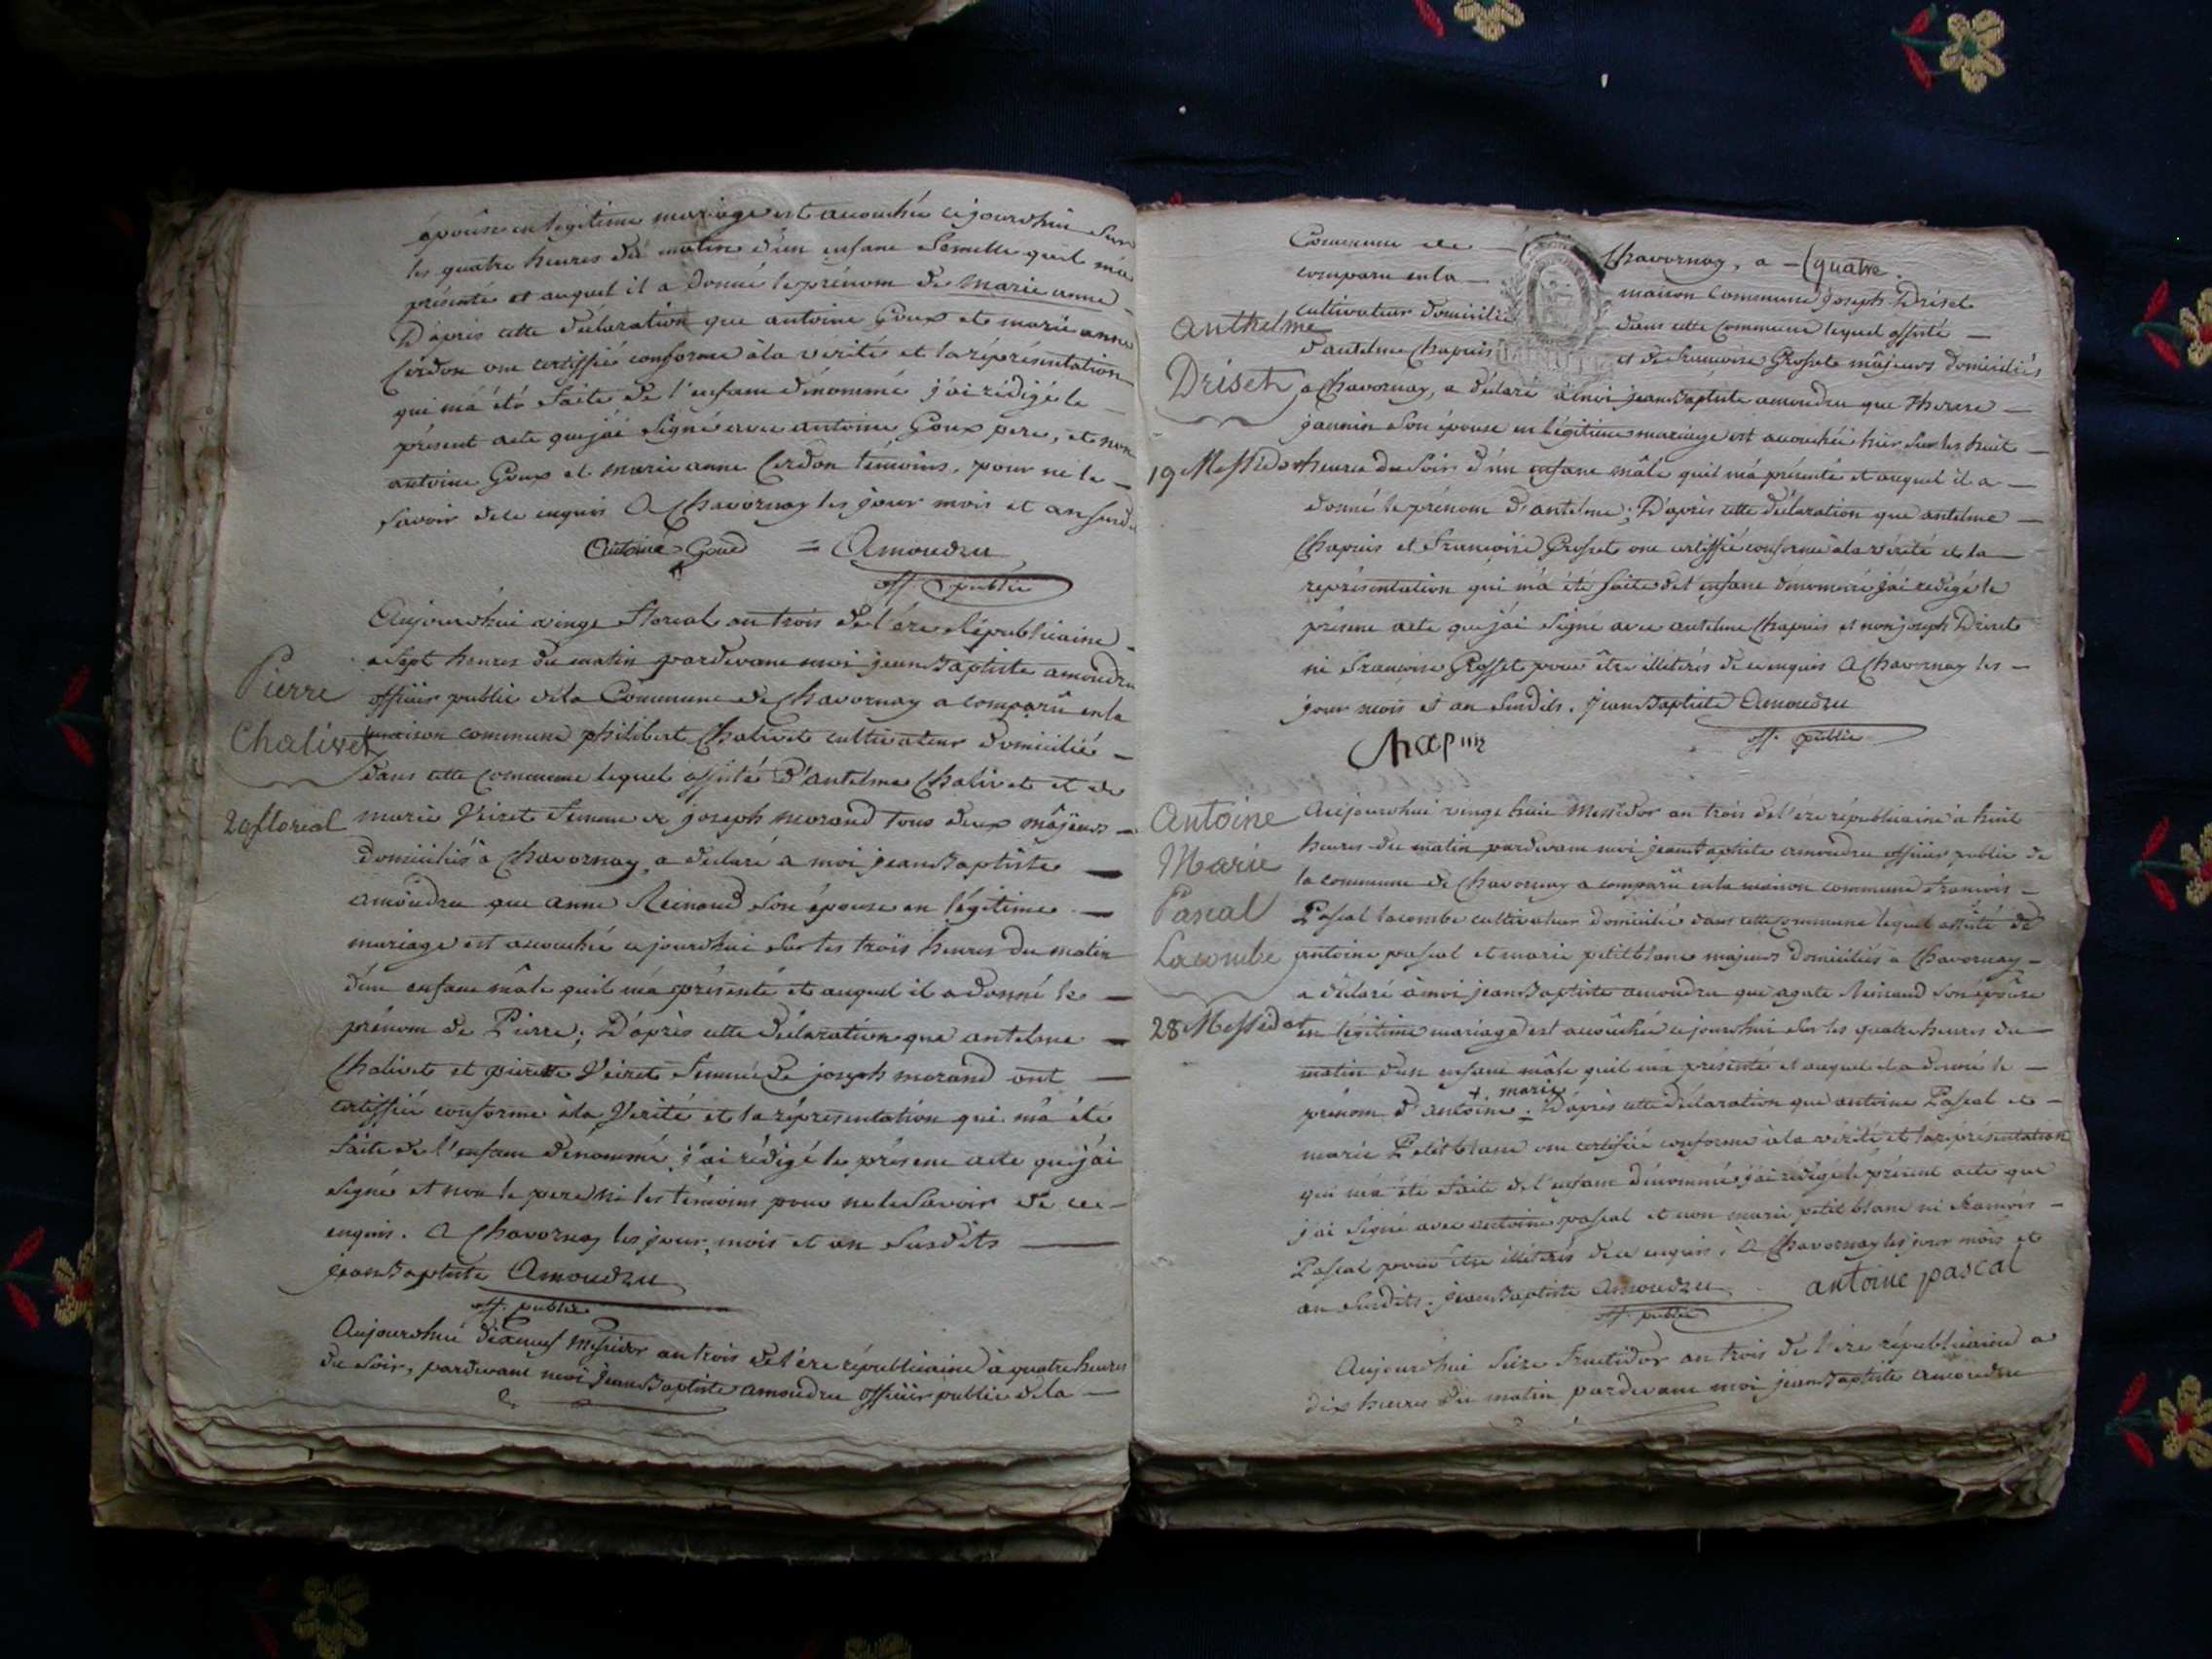 épouse en légitime mariage est accouchée cejourdhui sur
les quatre heures du matin d'un enfant femelle quil m'a
présenté et auquel il a donné le prénom de marie anne
D'après cette declaration que antoine Goux et marie anne
Cerdon ont certiffié conforme à la vérité et la réprésentation
qui m'a été faite de l'enfant dénommé j'ai rédigé le —
présent acte que j'ai signé avec antoine Goux pere, et non
antoine Goux et marie anne Cerdon témoins, pour ne le —
savoir de ce enquis A Chavornay les jour mois et an susd
Antoine Goud = Amoudru
off. public
Aujourdhui vingt floreal an trois de l'ére Républicaine
a sept heures du matin pardevant moi jean Baptiste amoudru
Pierre
officier public de la Commune de Chavornay a comparû en la
Chalivet
maison commune philibert Chalivet cultivateur domicilié —
dans cette commune lequel assisté d'antelme Chalivet et de
20 floreal
marie Veiret femme de joseph morand tous deux majeurs —
domiciliés à Chavornay, a declaré a moi jean Baptiste —
amoudru que anne Reinaud son épouse en légitime —
mariage est accouchée cejourdhui sur les trois heures du matin
d'un enfant mâle quil m'a présenté et auquel il a donné le —
prénom de Pierre; D'après cette déclaration que antelme —
Chalivet et Veiret femme de joseph morand ont —
certiffié conforme à la Verité et la réprésentation qui m'a été
faite de l'enfant dénommé j'ai rédigé le présent acte que j'ai
signé et non le pere ni les témoins pour ne le savoir de ce —
enquis. A Chavornay les jour, mois et an susdits —
jean Baptiste Amoudru
off. public
Aujourdhui dixneuf Messidor an trois de l'ére républicaine à quatre heures
du soir, pardevant moi jean Baptiste amoudru officier public de la —
Commune de — Chavornay, a — (quatre.
comparu en la — maison Commune joseph Driset
cultivateur domicilié dans cette commune lequel assisté —
Anthelme
d'antelme Chapuis et de francoise Grosset majeurs domiciliés
Driset
a Chavornay, a déclaré a moi jean Baptiste amoudru que therese —
jannin son épouse en légitime mariage est accouchée hier sur les huit —
19 Messidor
heures du soir d'un enfant mâle quil m'a présenté et auquel il a —
donné le prénom d'antelme; D'après cette déclaration que antelme —
Chapuis et francoise Grosset ont certiffié conforme à la vérité et la —
représentation qui m'a été faite de l'enfant dénommé j'ai redigé le
présent acte que j'ai signé avec antelme Chapuis et non joseph Driset
ni francoise Grosset pour être illiterés de ce enquis A Chavornay les —
jour mois et an susdits. jean Baptiste Amoudru
off. public
Chapuis
Antoine
Marie
Pascal
Lacombe
28 Messidor
Aujourdhui vingt huit Messidor an trois de l'ére républicaine à huit
heures du matin pardevant moi jean Baptiste amoudru officier public de
la commune de Chavornay a comparû en la maison commune francois —
Pascal lacombe cultivateur domicilié dans cette commune lequel assisté de
antoine pascal et marie petitblanc majeurs domiciliés a Chavornay —
a déclaré à moi jean Baptiste amoudru que agate Reinaud son épouse
en légitime mariage est accouchée cejourdhui sur les quatre heures du —
matin d'un enfant mâle quil m'a présenté et auquel il a donné le —
+ marie
prénom d'antoine. D'après cette déclaration que antoine Pascal et —
marie Petitblanc ont certifié conforme à la vérité et la réprésentation
qui m'a été faite de l'enfant dénommé j'ai rédigé le présent acte que
j'ai signé avec antoine pascal et non marie petit blanc ni francois —
Pascal pour être illiterés de ce enquis. A Chavornay les jour mois et
an susdits. jean Baptiste Amoudru antoine pascal
off. public
Aujourdhui seize fructidor an trois de l'ére républicaine a
dix heures du matin pardevant moi jean Baptiste amoudru